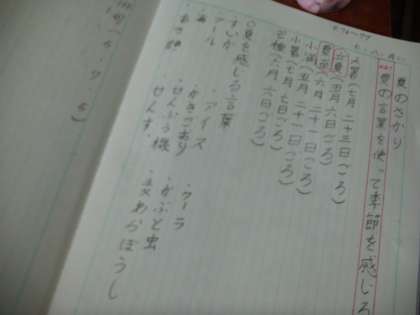 P.76~77
夏のさかり
夏の言葉を使って季節を感じろ
大暑(七月二十三日ごろ)
立夏(五月六日ごろ)
夏至(六月二十一日ごろ)
小満(五月二十一日ごろ)
小暑(七月七日ごろ)
芒種(六月六日ごろ)
○夏を感じる言葉
すいか
プール・アイス・クーラ
・かきごおり・かぶと虫
・せんぷう機・麦わらぼうし
・せんす
俳句(5・7・5)